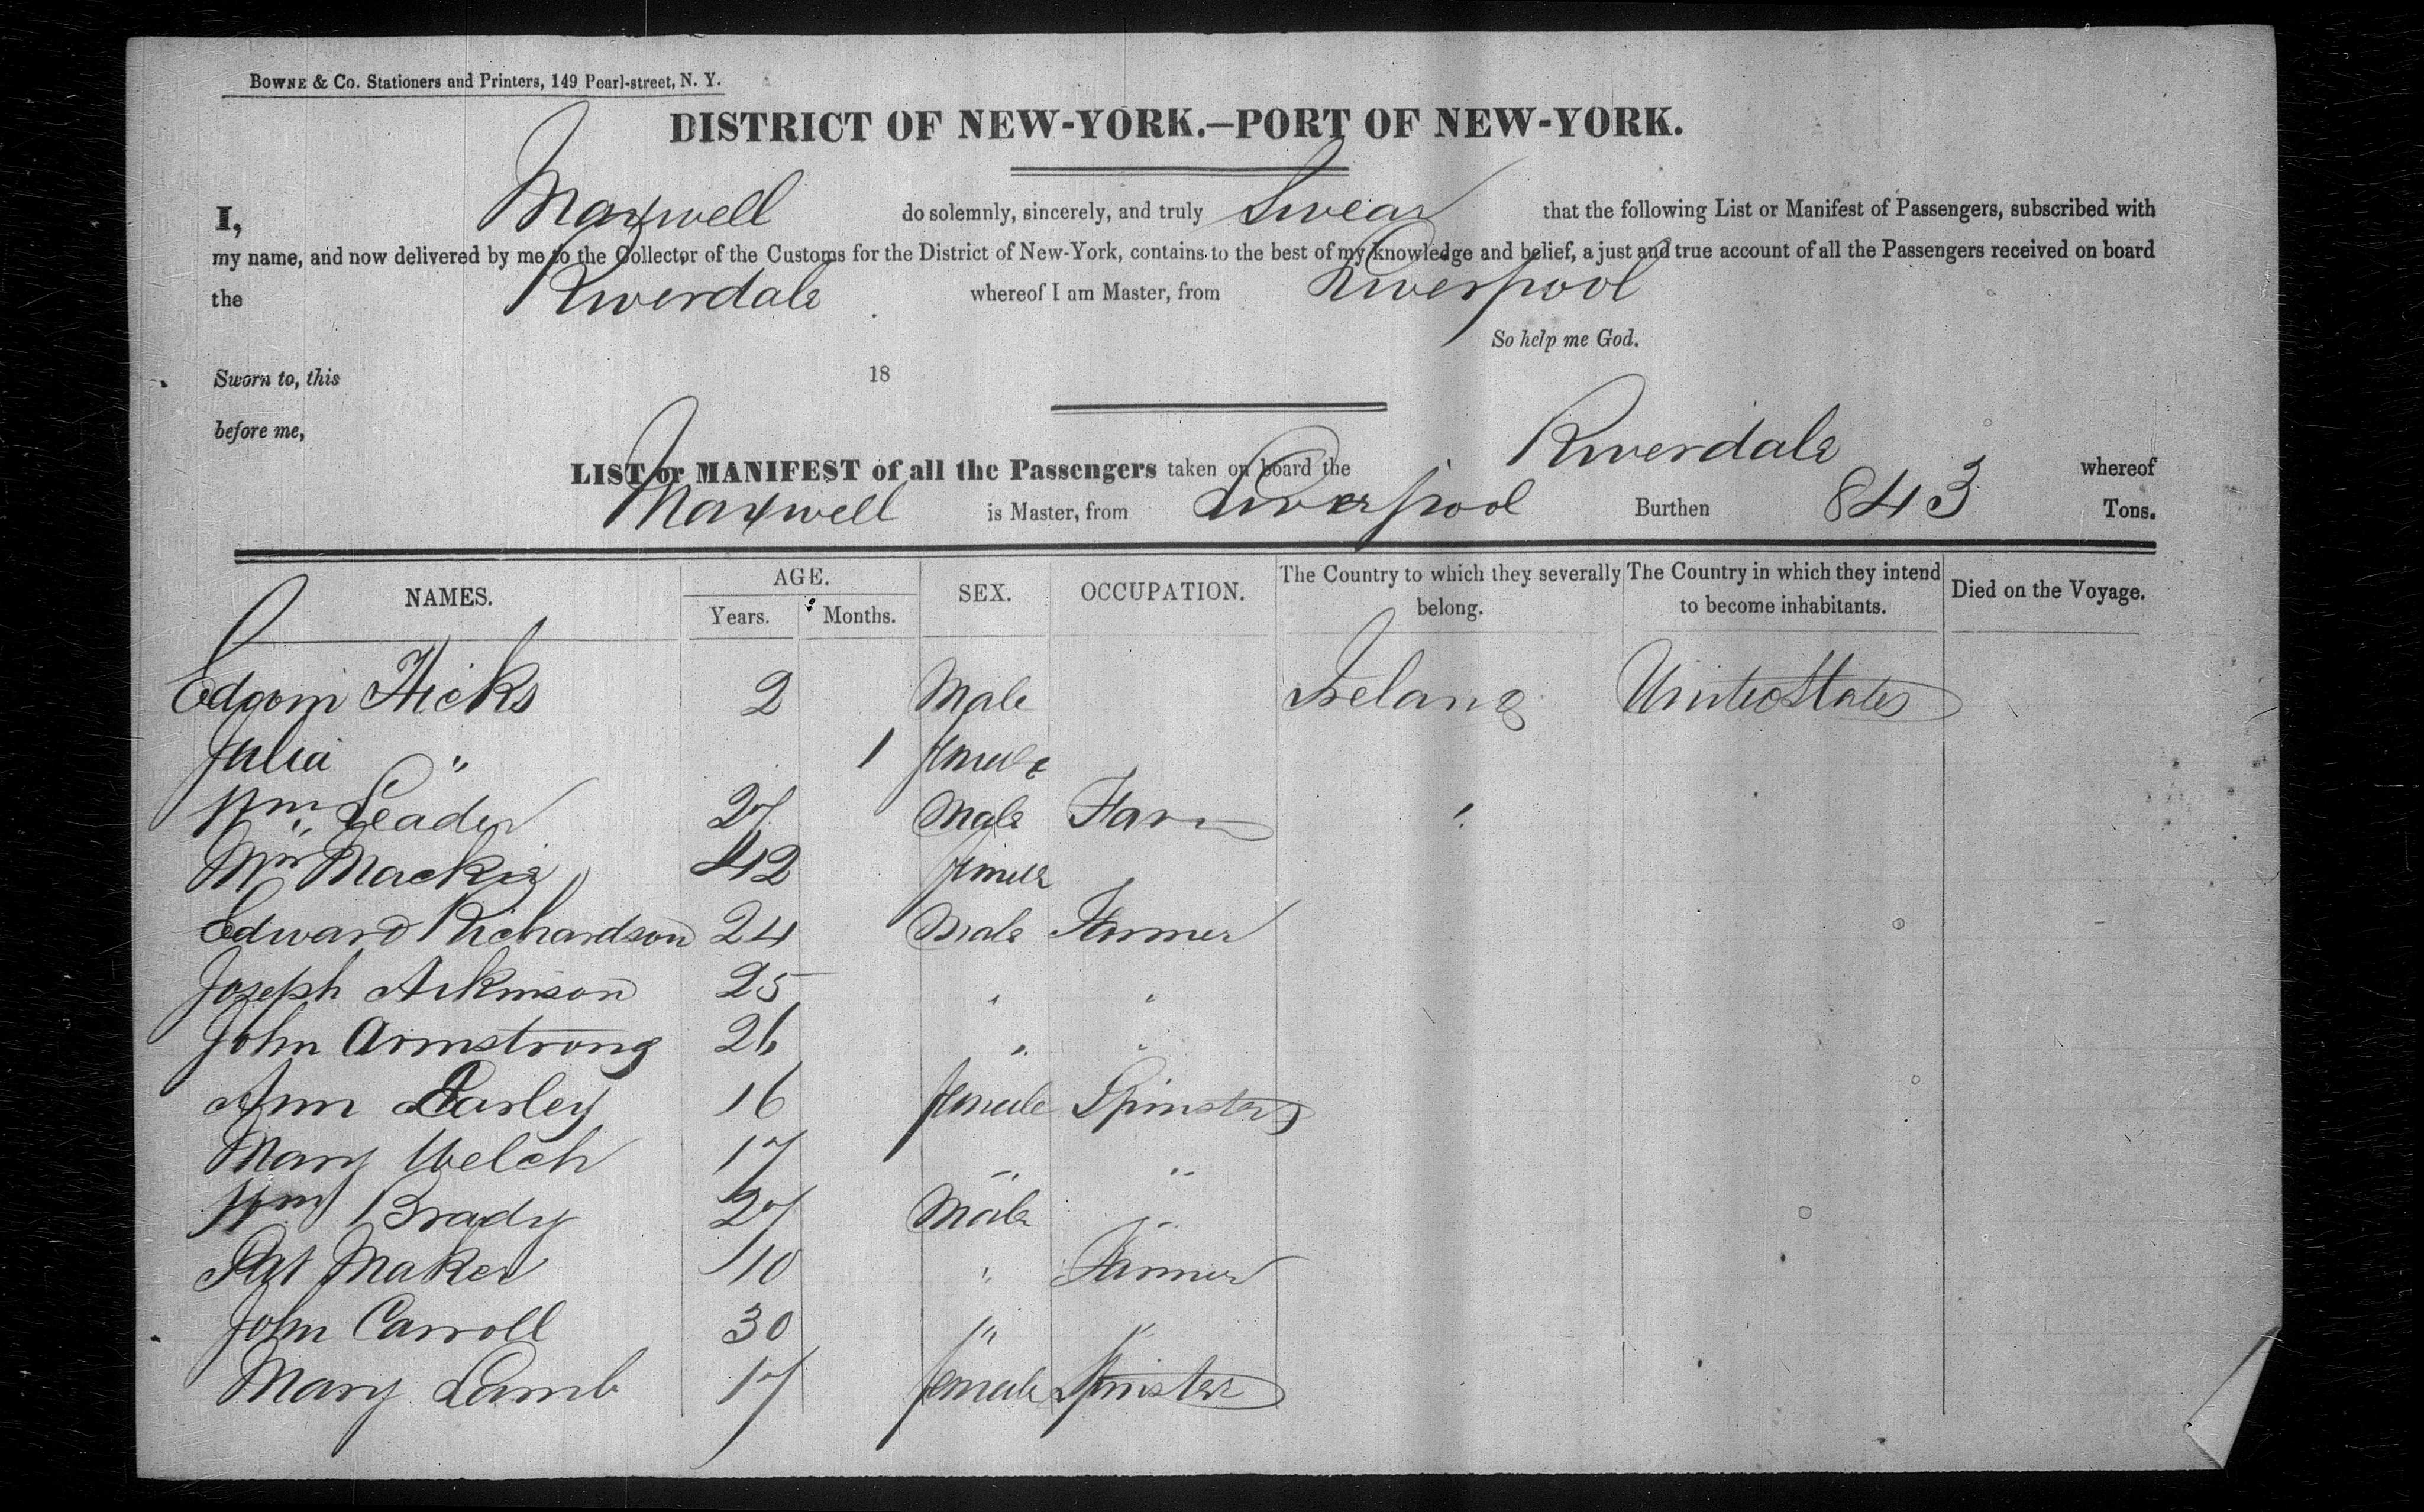 BOWNE & CO. Stationers and Printers, 149 Pearl-street, N. Y.
DISTRICT OF NEW-YORK.—PORT OF NEW-YORK.
I, Maxwell do solemnly, sincerely, and truly Swear that the following List or Manifest of Passengers, subscribed with
my name, and now delivered by me to the Collector of the Customs for the District of New-York, contains to the best of my knowledge and belief, a just and true account of all the Passengers received on board
the Riverdale whereof I am Master, from Liverpool
So help me God.
Sworn to, this 18
before me,
LIST or MANIFEST of all the Passengers taken on board the Riverdale whereof
Maxwell is Master, from Liverpool Burthen 843 Tons.
NAMES. AGE. Years. Months. SEX. OCCUPATION. The Country to which they severally belong. The Country in which they intend to become inhabitants. Died on the Voyage.
Hicks 2 Male Ireland United States
Julia " 1 female
Wm Leader 27 Male Farm "
Mackie 42 female
Edward Richardson 24 Male Farmer
Joseph Atkinson 25 " "
John Armstrong 26 " "
Ann Darley 16 female Spinster
Mary Welch 17 " "
Wm Brady 27 Male "
Pat Maker 10 " Farmer
John Carroll 30 " "
Mary Lamb 17 female Spinster